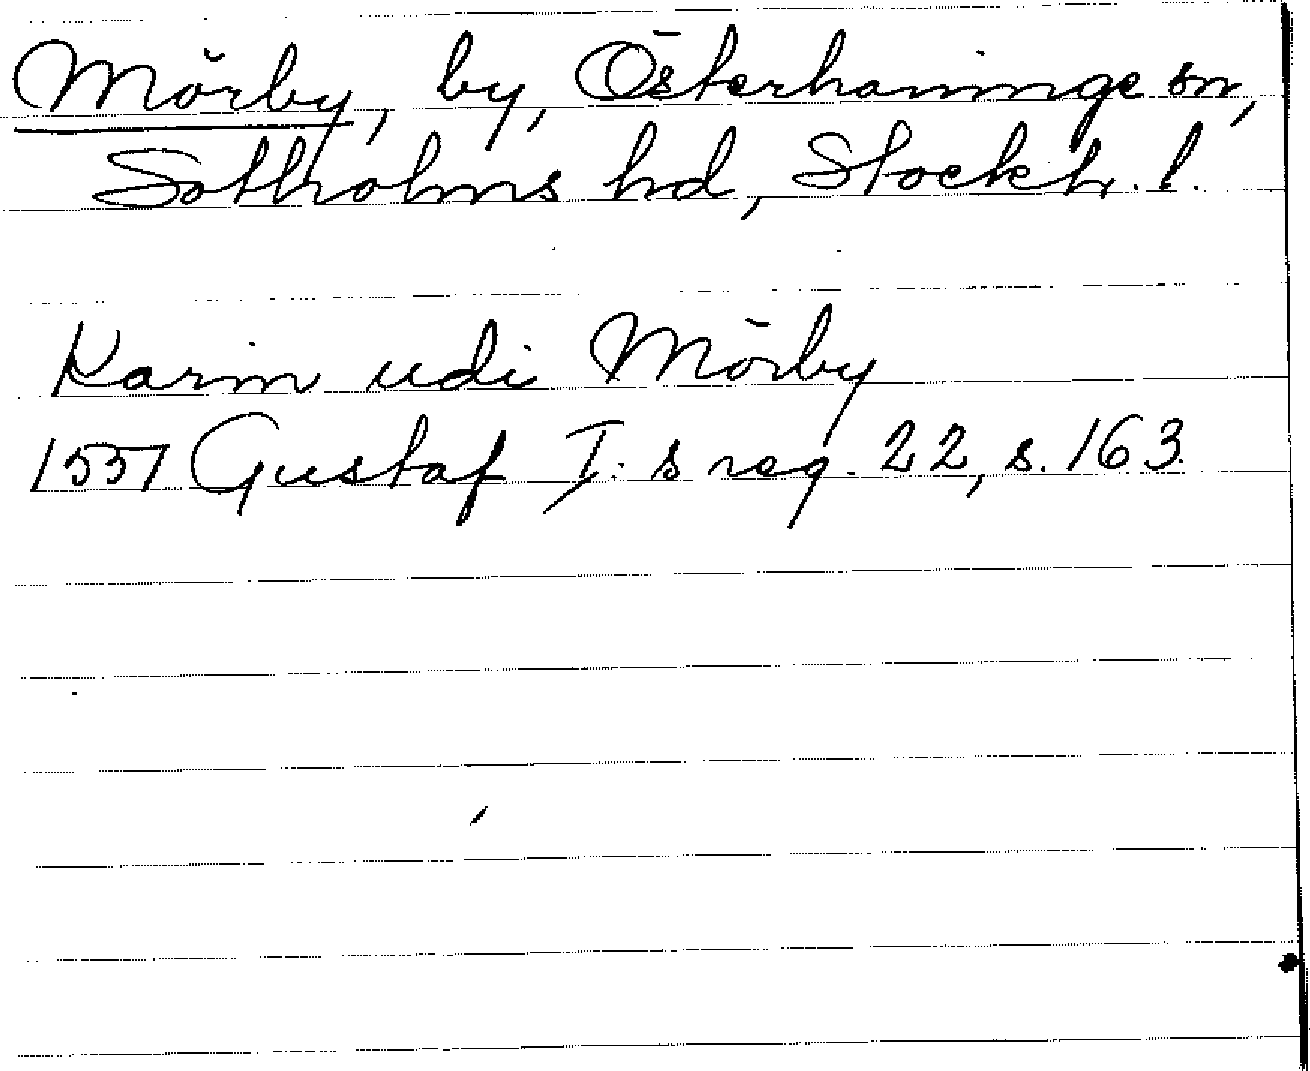 Mörby, by, Österhaninge sn,
Sotholms hd, Stockh. l.
Karin udi Mörby
1551 Gustaf I:s reg. 22, s. 163.